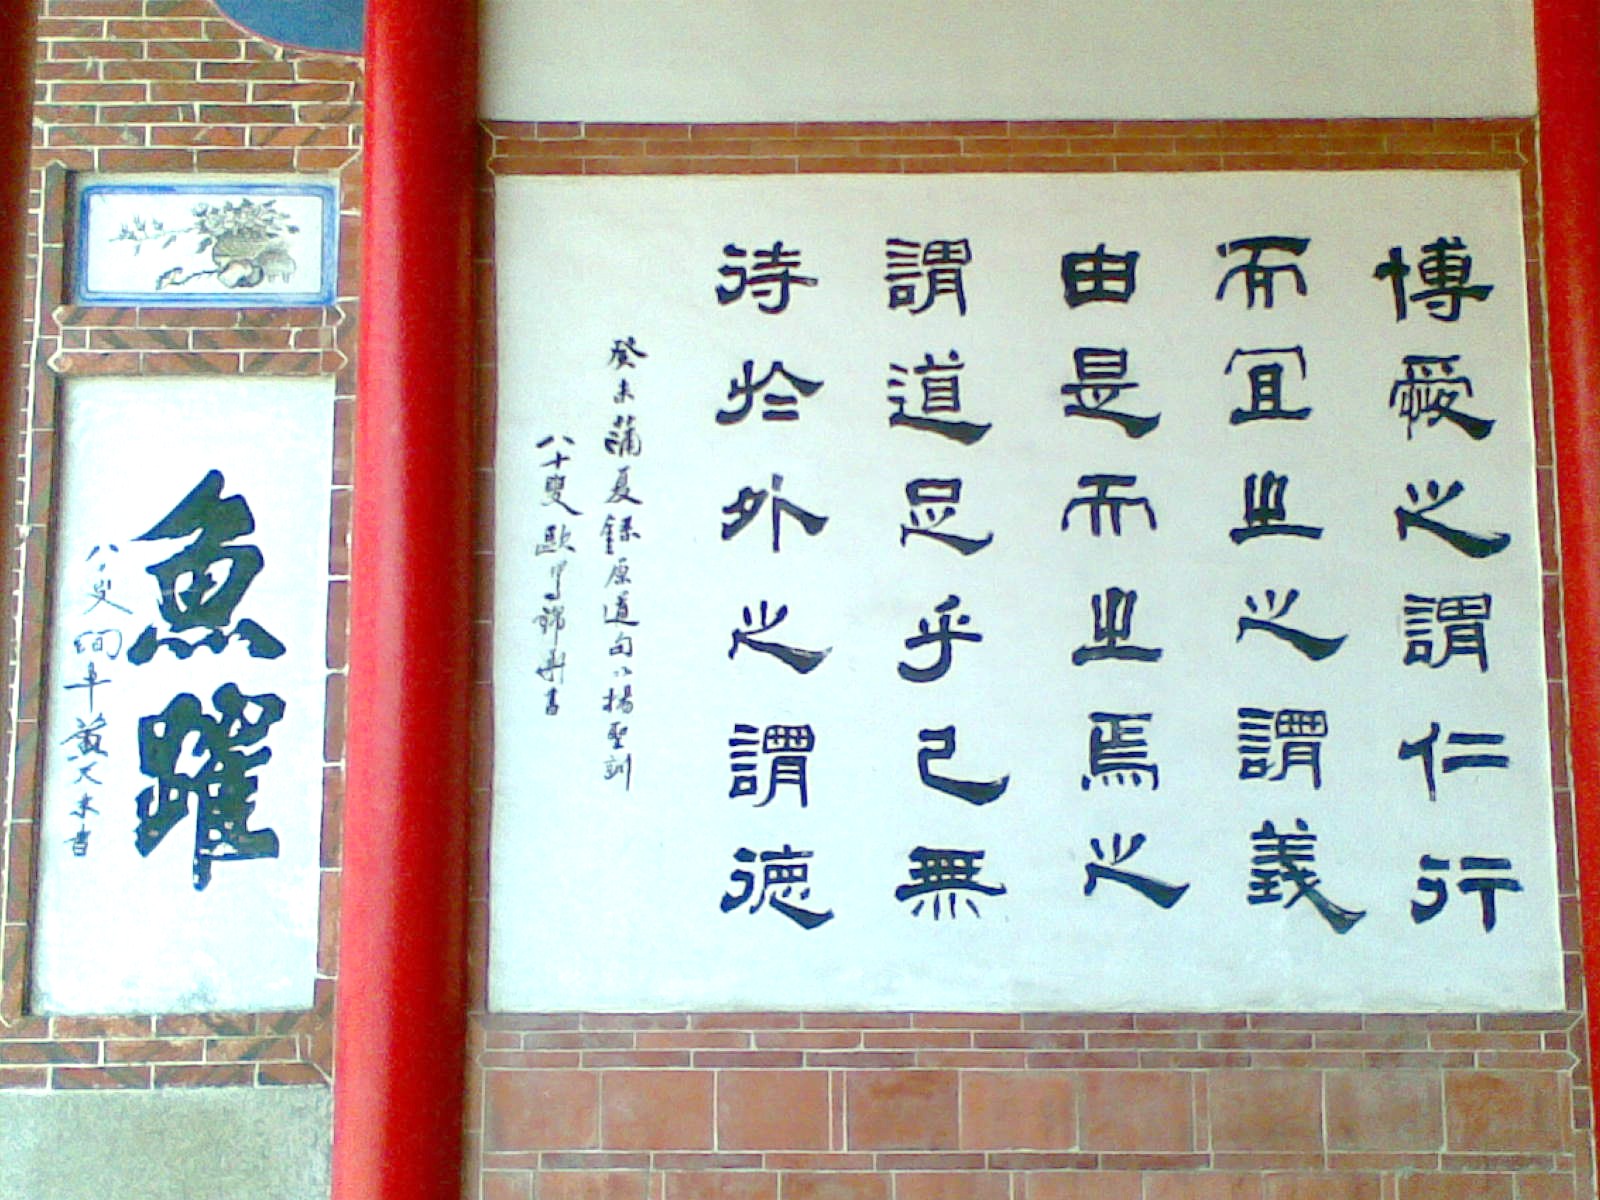 博愛之謂仁行
而宜之之謂義
由是而之焉之
謂道足乎己無
待於外之謂德
癸未蒲夏錄原道句以揚聖訓
八十叟歐
書
魚躍
八十叟
黃天來書